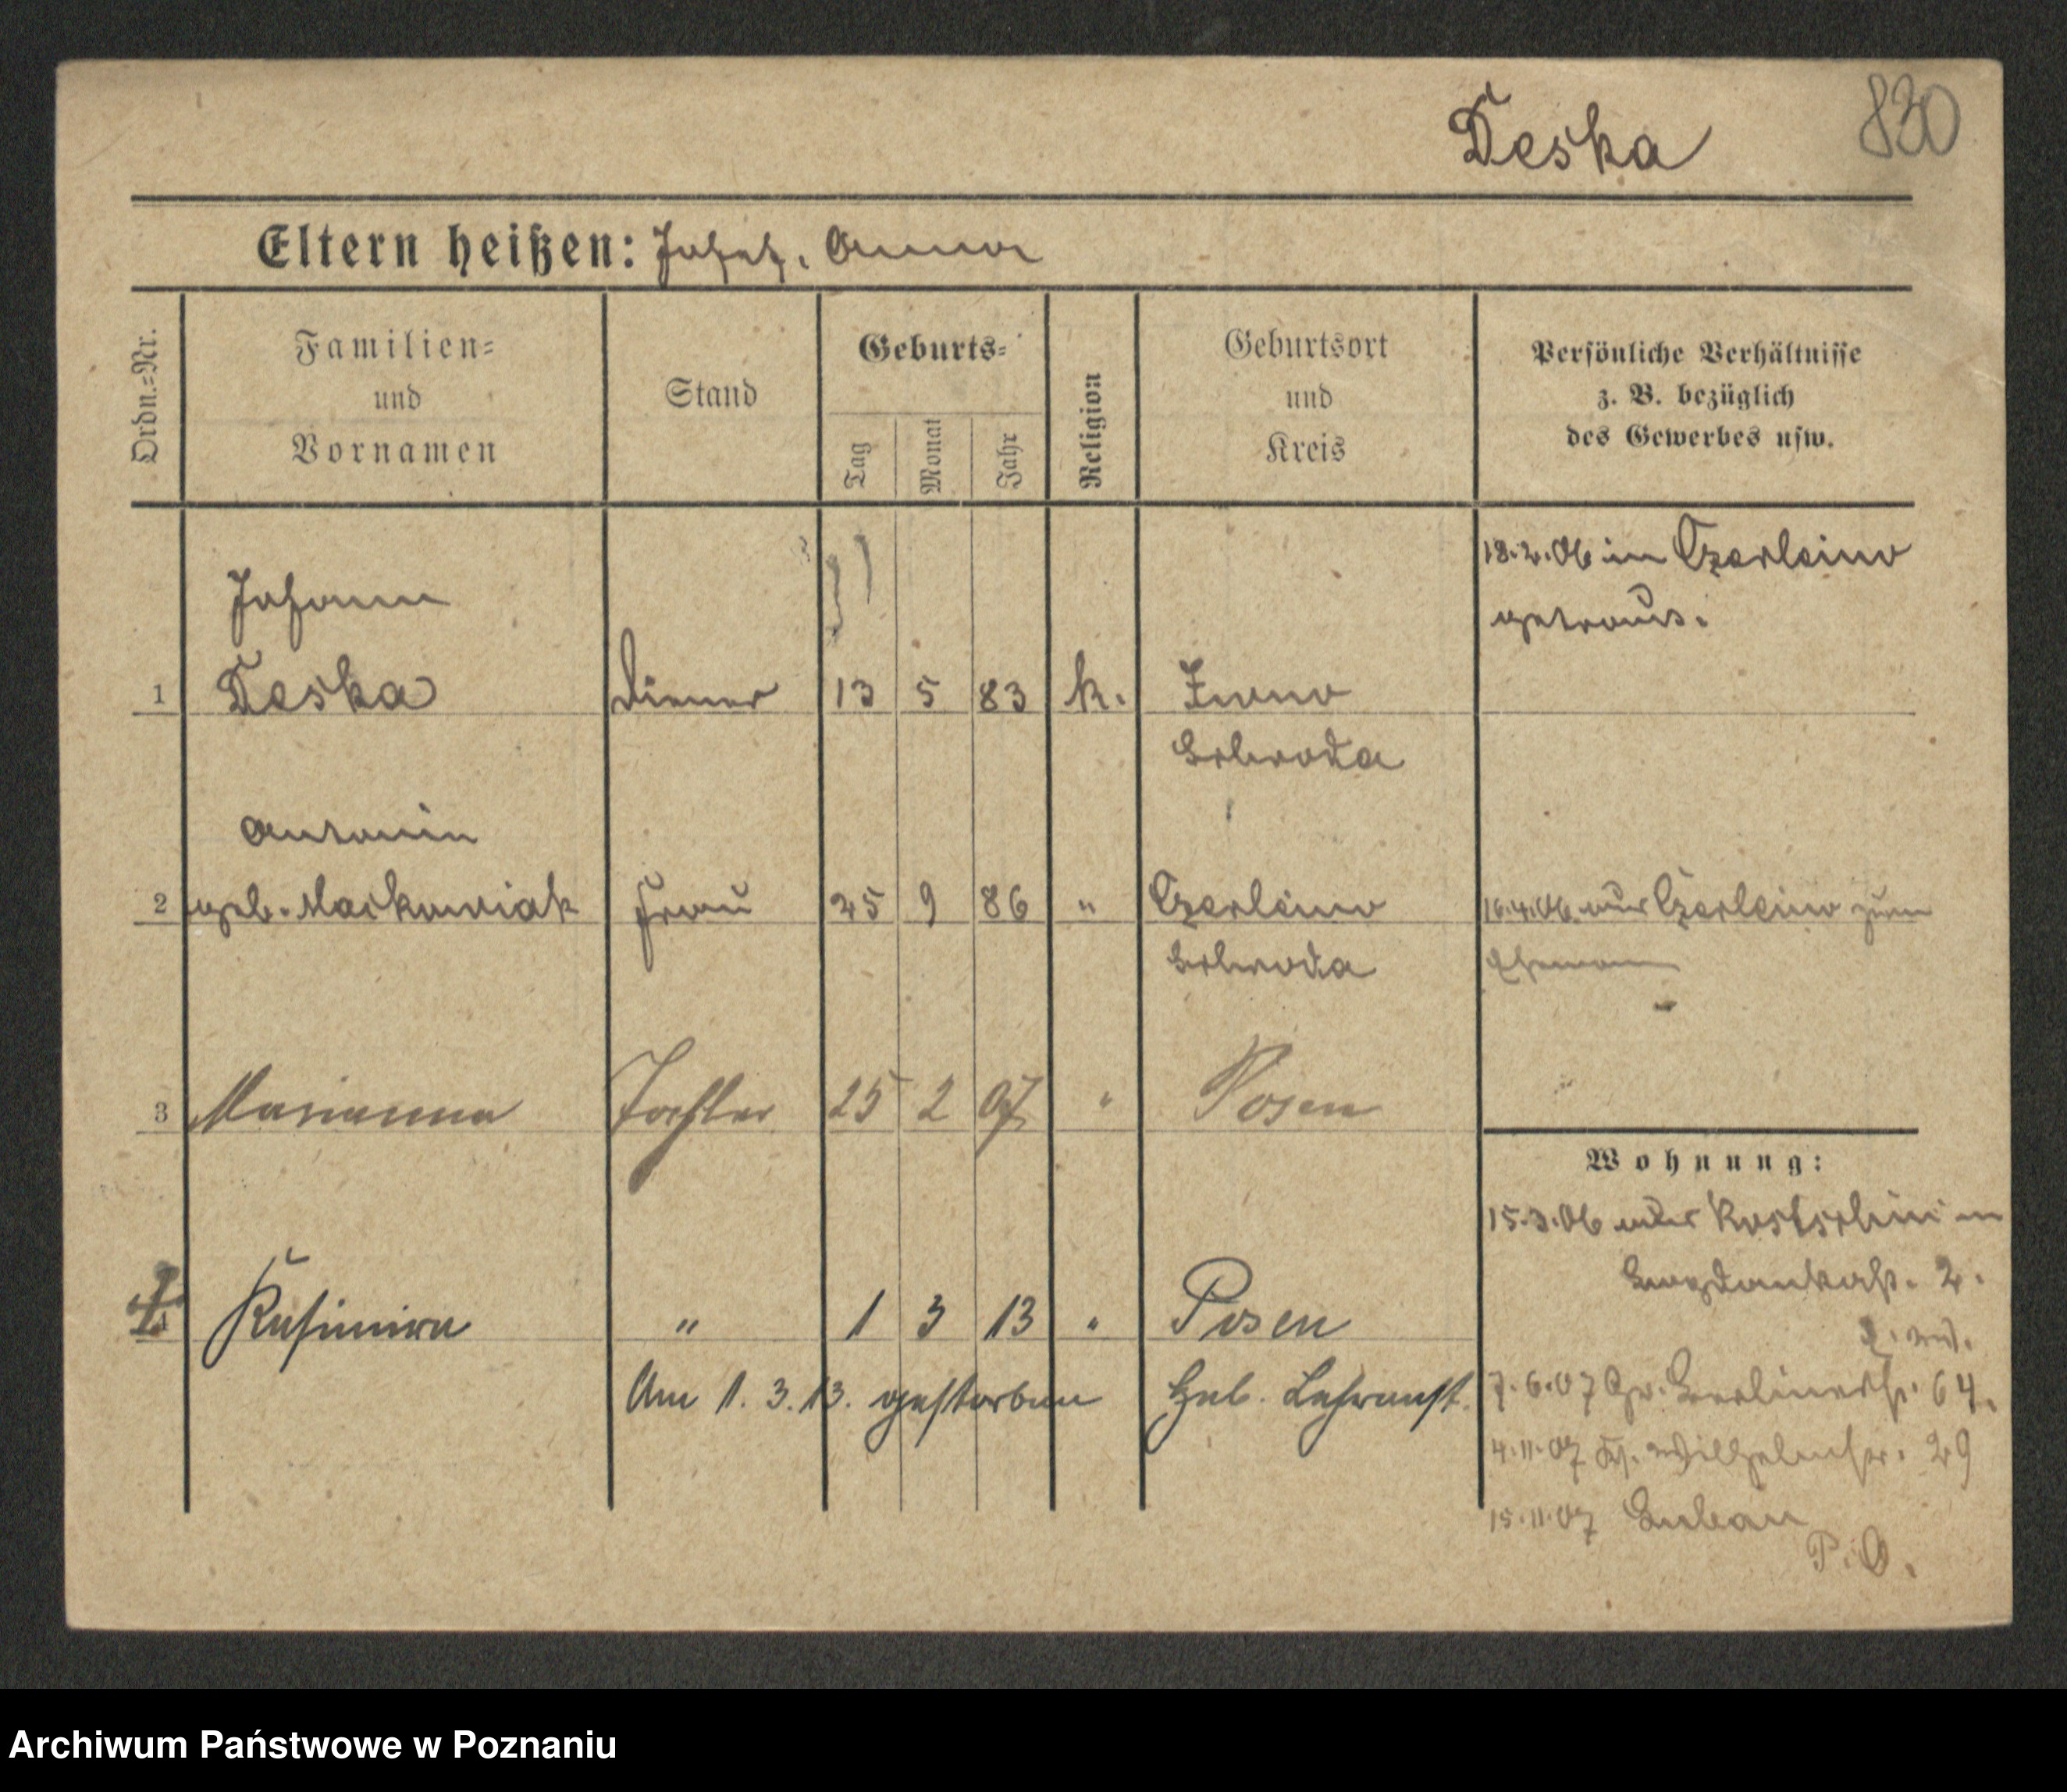 Deska
830
Eltern heißen: Josef, Anna
Ordn.=Nr.
Familien=
und
Vornamen
Stand
Geburts=
Tag
Monat
Jahr
Religion
Geburtsort
und
Kreis
Persönliche Verhältnisse
z. B. bezüglich
des Gewerbes usw.
18.2.06 in Czerleino
getraut.
Johann
1 Deska Diener 13 5 83 k.
Schroda
Antonin
2 geb. Maćkowiak Frau 25 9 86 " Czerleino 16.4.06 aus Czerleino zum
Schroda Ehemann
3 Marianna Tochter 25 2 07 " Posen
Wohnung:
15.3.06 aus Kostschin in
Bogdankastr. 2.
4 Kasimira " 1 3 13 " Posen
Am 1.3.13. gestorben Heb. Lehranst.
7.6.07 Gr. Berlinerstr. 64.
4.11.07 Wilhelmstr. 29
15.11.07
P. O.
Archiwum Państwowe w Poznaniu